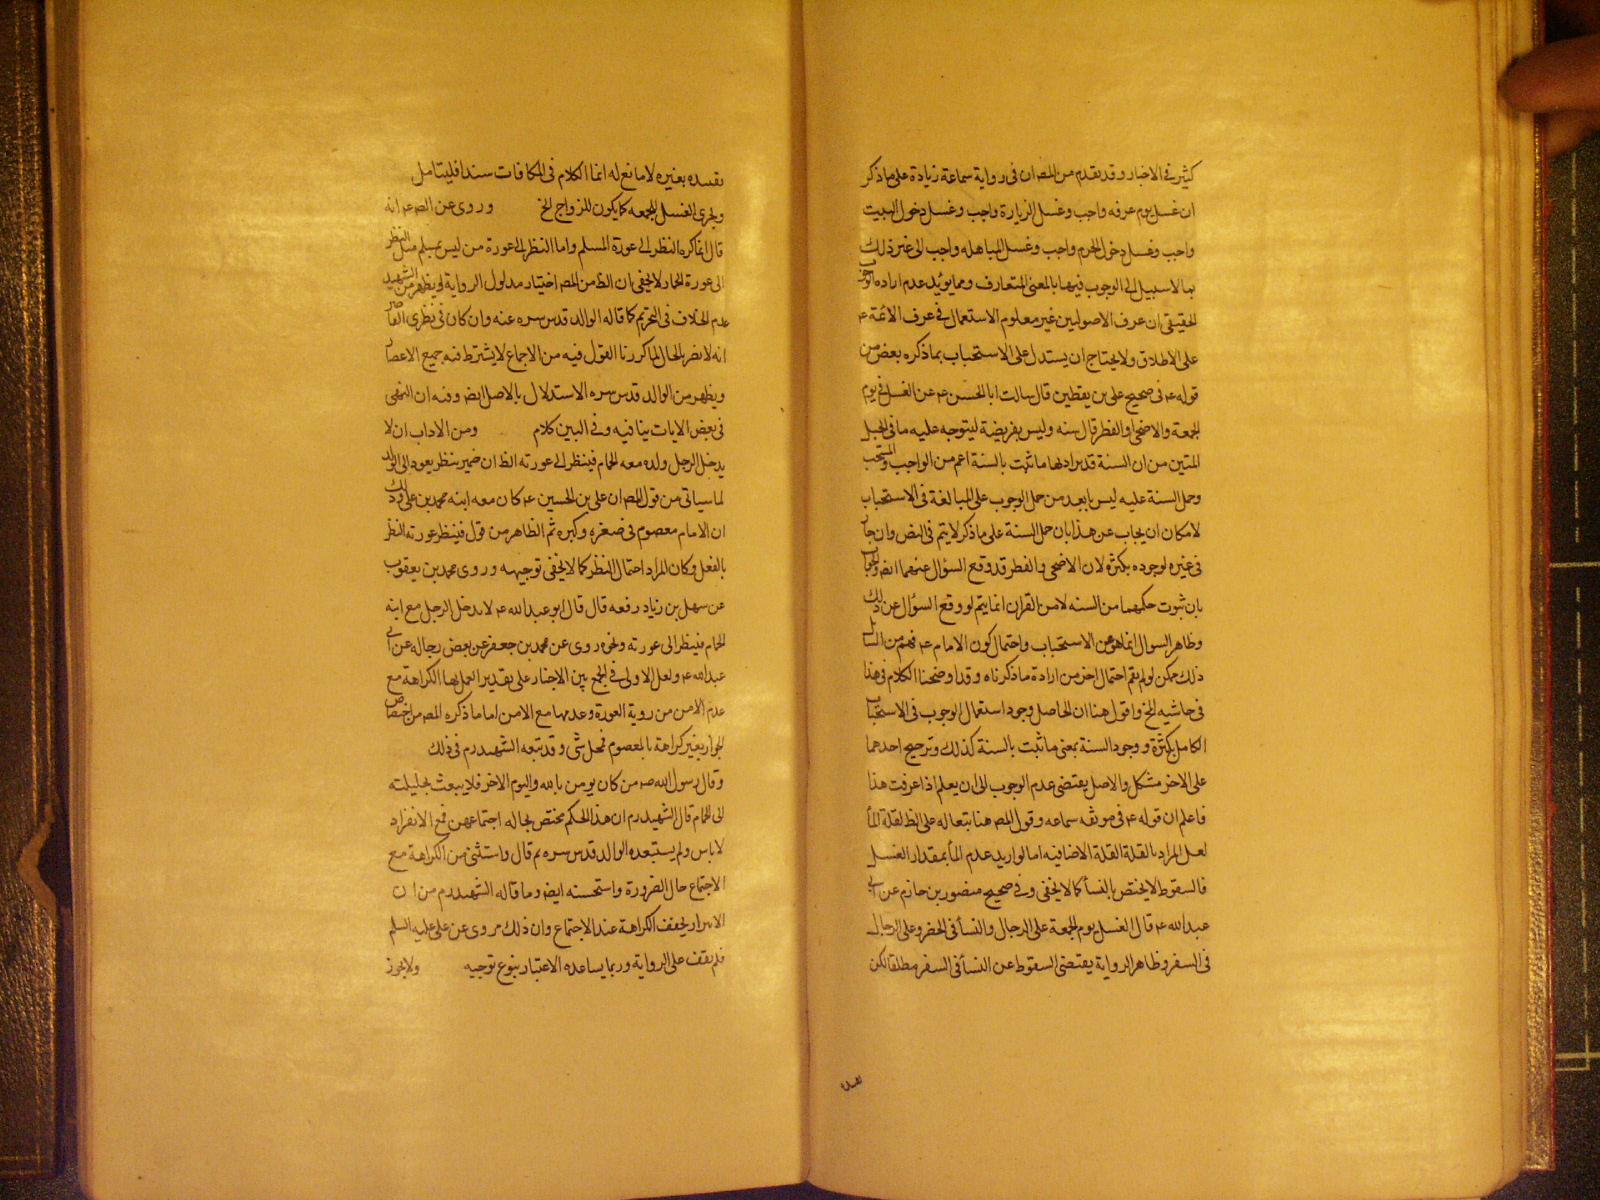 كثير في الاخبار وقد تقدم من المص ان في رواية سماعة زيادة على ما ذكر
ان غسل يوم عرفه واجب وغسل الزيارة واجب وغسل دخول البيت
واجب وغسل دخول الحرم واجب وغسل المباهله واجب الى غير ذلك
مما لا سبيل الى الوجوب فيها بالمعنى المتعارف ومما يؤيد عدم اراده الوجوب
الحقيقي ان عرف الاصوليين غير معلوم الاستعمال في عرف الائمة ع
على الاطلاق ولا يحتاج ان يستدل على الاستحباب بما ذكره بعض من
قوله ع في صحيح علي بن يقطين قال سالت ابا الحسن ع عن الغسل في يوم
الجمعة والاضحى والفطر قال سنه وليس بفريضة ليتوجه عليه ما في الحبل
المتين من ان السنة قد يراد بها ما ثبت بالسنة اعم من الواجب والمستحب
وحمل السنة عليه ليس بابعد من حمل الوجوب على المبالغة في الاستحباب
لامكان ان يجاب عن هذا بان حمل السنة على ما ذكر لا يتم في النص وان جاز
في غيره لوجوده بكثرة لان الاضحى والفطر قد وقع السؤال عنهما ايض والجواب
بان ثبوت حكمهما من السنه لا من القران انما يتم لو وقع السؤال عن ذلك
وظاهر السوال انما هو عن الاستحباب واحتمال كون الامام ع فهم من السائل
ذلك ممكن لو لم يقم احتمال اخر من ارادة ما ذكرناه وقد اوضحنا الكلام في هذا
في حاشيه الخ واقول هنا ان الحاصل وجود استعمال الوجوب في الاستحباب
الكامل بكثرة ووجود السنة بمعنى ما ثبت بالسنة كذلك وترجيح احدهما
على الاخر مشكل والاصل يقتضى عدم الوجوب الى ان يعلم اذا عرفت هذا
فاعلم ان قوله ع في موثقه سماعه وقول المص هنا بتعا له على الظ لقلة الماء
لعل المراد بالقلة القلة الاضافيه اما لو اريد عدم الماء بمقدار الغسل
فالسقوط لا يختص بالنساء كما لا يخفى وفي صحيح منصور بن حازم عن ابي
عبد الله ع قال الغسل يوم الجمعة على الرجال والنساء في الحضر وعلى الرجال
في السفر وظاهر الرواية يقتضى السقوط عن النساء في السفر مطلقا لكن
بقيده بغيره لا مانع له انما الكلام في المكافات سندا فليتامل
ويجزى الغسل للجمعه كما يكون للزواج الخ وروى عن الص ع انه
قال انما كره النظر الى عورة المسلم واما النظر الى عورة من ليس بمسلم مثل النظر
الى عورة الحمار لا يخفى ان الظ من المص اختيار مدلول الرواية ويظهر من الشهيد
عدم الخلاف في التحريم كما قاله الوالد قدس سره عنه وان كان في نظرى القاصر
انه لا يضر بالحال لما كررنا القول فيه من الاجماع لا يشترط فيه جميع الاعصار
ويظهر من الوالد قدس سره الاستدلال بالاصل ايض وفيه ان النهى
في بعض الايات ينافيه وفي البين كلام ومن الاداب ان لا
يدخل الرجل ولده معه الحمام فينظر الى عورته الظ ان ضمير ينظر يعود الى الولد
لما سياتى من قول المص ان علي بن الحسين ع كان معه ابنه محمد بن علي وذلك
ان الامام معصوم في صغره وكبره ثم الظاهر من قول فينظر عورته النظر
بالفعل وكان المراد احتمال النظر كما لا يخفى توجيهه وروى محمد بن يعقوب
عن سهل بن زياد رفعه قال قال ابو عبد الله ع لا يدخل الرجل مع ابنه
الحمام فينظر الى عورته ونحوه روى عن محمد بن جعفر عن بعض رجاله عن ابي
عبد الله ع ولعل الاولى في الجمع بين الاخبار على تقدير العمل بها الكراهة مع
عدم الامن من روية العورة وعدمها مع الامن اما ما ذكره المص من اختصاص
الجواز بغير كراهة بالمعصوم فمحل شى وقد تبعه الشهيد رم في ذلك
وقال رسول الله ص من كان يومن بالله واليوم الاخر فلا يبعث بحليلته
الى الحمام قال الشهيد رم ان هذا الحكم مختص بحاله اجتماعهن فمع الانفراد
لا باس ولم يستبعده الوالد قدس سره ثم قال واستثنى من الكراهة مع
الاجتماع حال الضرورة واستحسنه ايض وما قاله الشهيد رم من ان
الاتزار يخفف الكراهة عند الاجتماع وان ذلك مروى عن علي عليه السلم
فلم نقف على الرواية وربما يساعده الاعتبار بنوع توجيه ولا يجوز